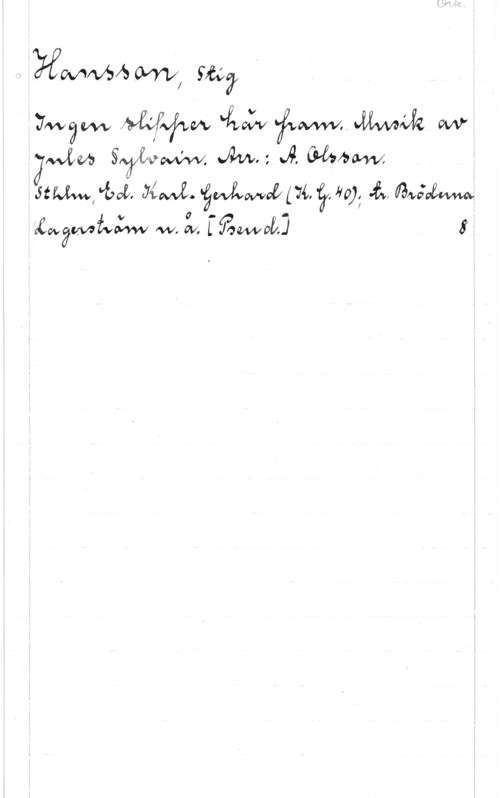 Ork.
Hansson, Stig
Ingen slipper här fram. Musik av
Jules Sylvain. Arr.: A. Olsson.
Sthlm, Ed. Karl-Gerhard (K. G. 40); tr. Bröderna
Lagerström u. å. [Pseud.] 8